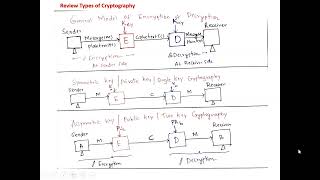 Review Types of Cryptography
General Model of Encryption & Decryption
Sender Key Key Receiver
Message(M) E Ciphertext(C) D Message
plaintext
Encryption Decryption
At Sender side At Receiver side
Symmetric key | Private key | Single key Cryptography
Sender Receiver
M E C D M
Asymmetric key | Public key | Two key Cryptography
Sender Receiver
A M E C D M R
Encryption Decryption